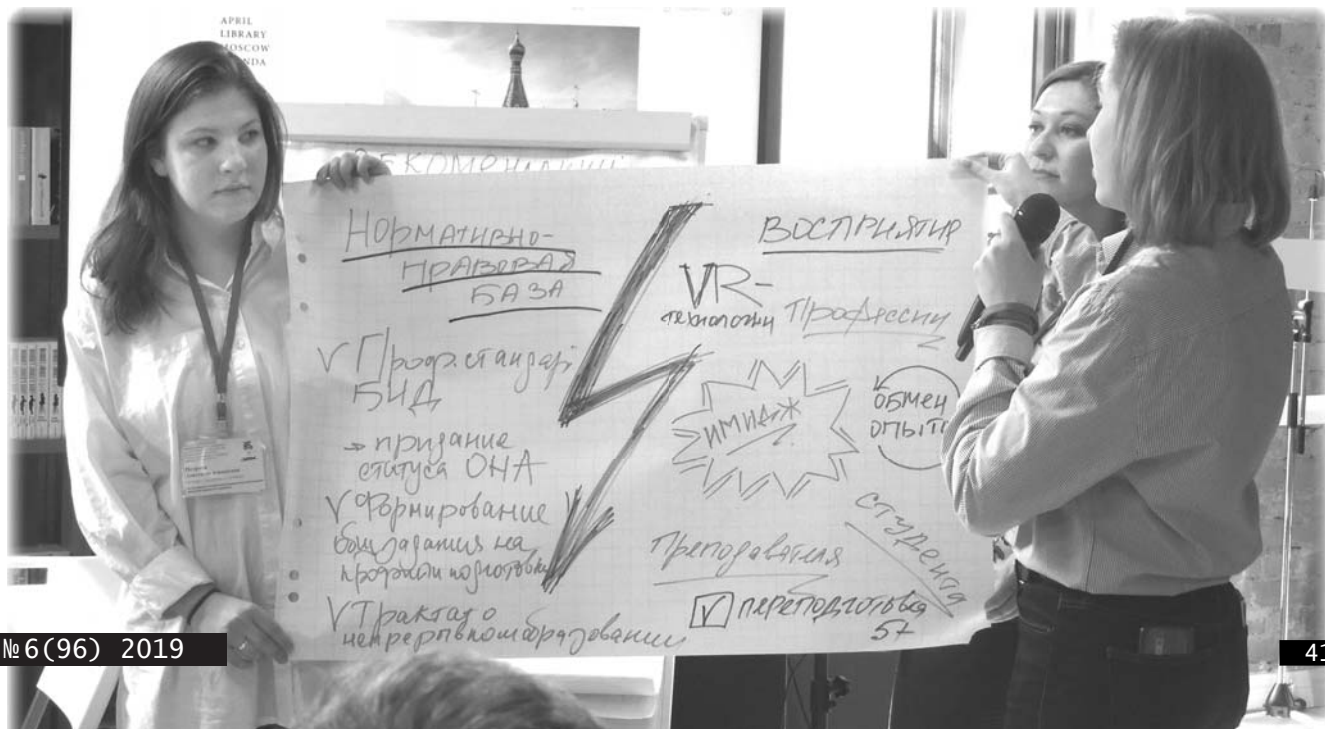 APRIL
LIBRARY
MOSCOW
НОРМАТИВНО-
ПРАВОВАЯ
БАЗА
V Проф.стандарт
БИД
→ придание
статуса ОНА
V Формирование
гос.задания на
профили подготовки
V Трактат о
непрерывном образовании
ВОСПРИЯТИЕ
VR-
технологии
Профессии
ИМИДЖ
ОБМЕН
ОПЫТ
СТУДЕНТА
Преподавателя
V ПЕРЕПОДГОТОВКА
5+
№6(96) 2019
41